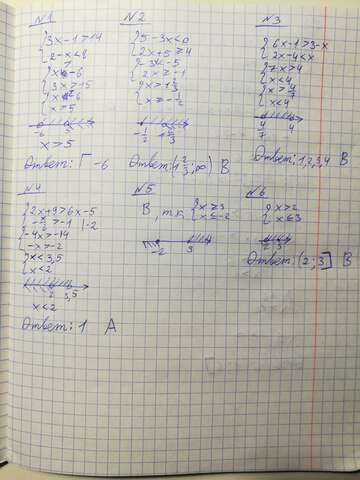 №1
3x-1>14
2-x<8
x>-6
3x>15
x>-6
x>5
-6 5
x>5
Ответ: Г -6
№2
5-3x<0
2x+5≥4
-3x<-5
2x≥-1
x>1 2/3
x≥-1/2
-1/2 1 2/3
Ответ: (1 2/3; ∞) В
№3
6x-1>3-x
2x-4<x
7x>4
x<4
x>4/7
x<4
4/7 4
Ответ: 1,2,3,4 В
№4
2x+9>6x-5
-x/2>-1 |·2
-4x>-14
-x>-2
x<3,5
x<2
2 3,5
x<2
Ответ: 1 А
№5
В, т.к x≥3
x≤-2
-2 3
№6
x>2
x≤3
2 3
Ответ: (2;3] В